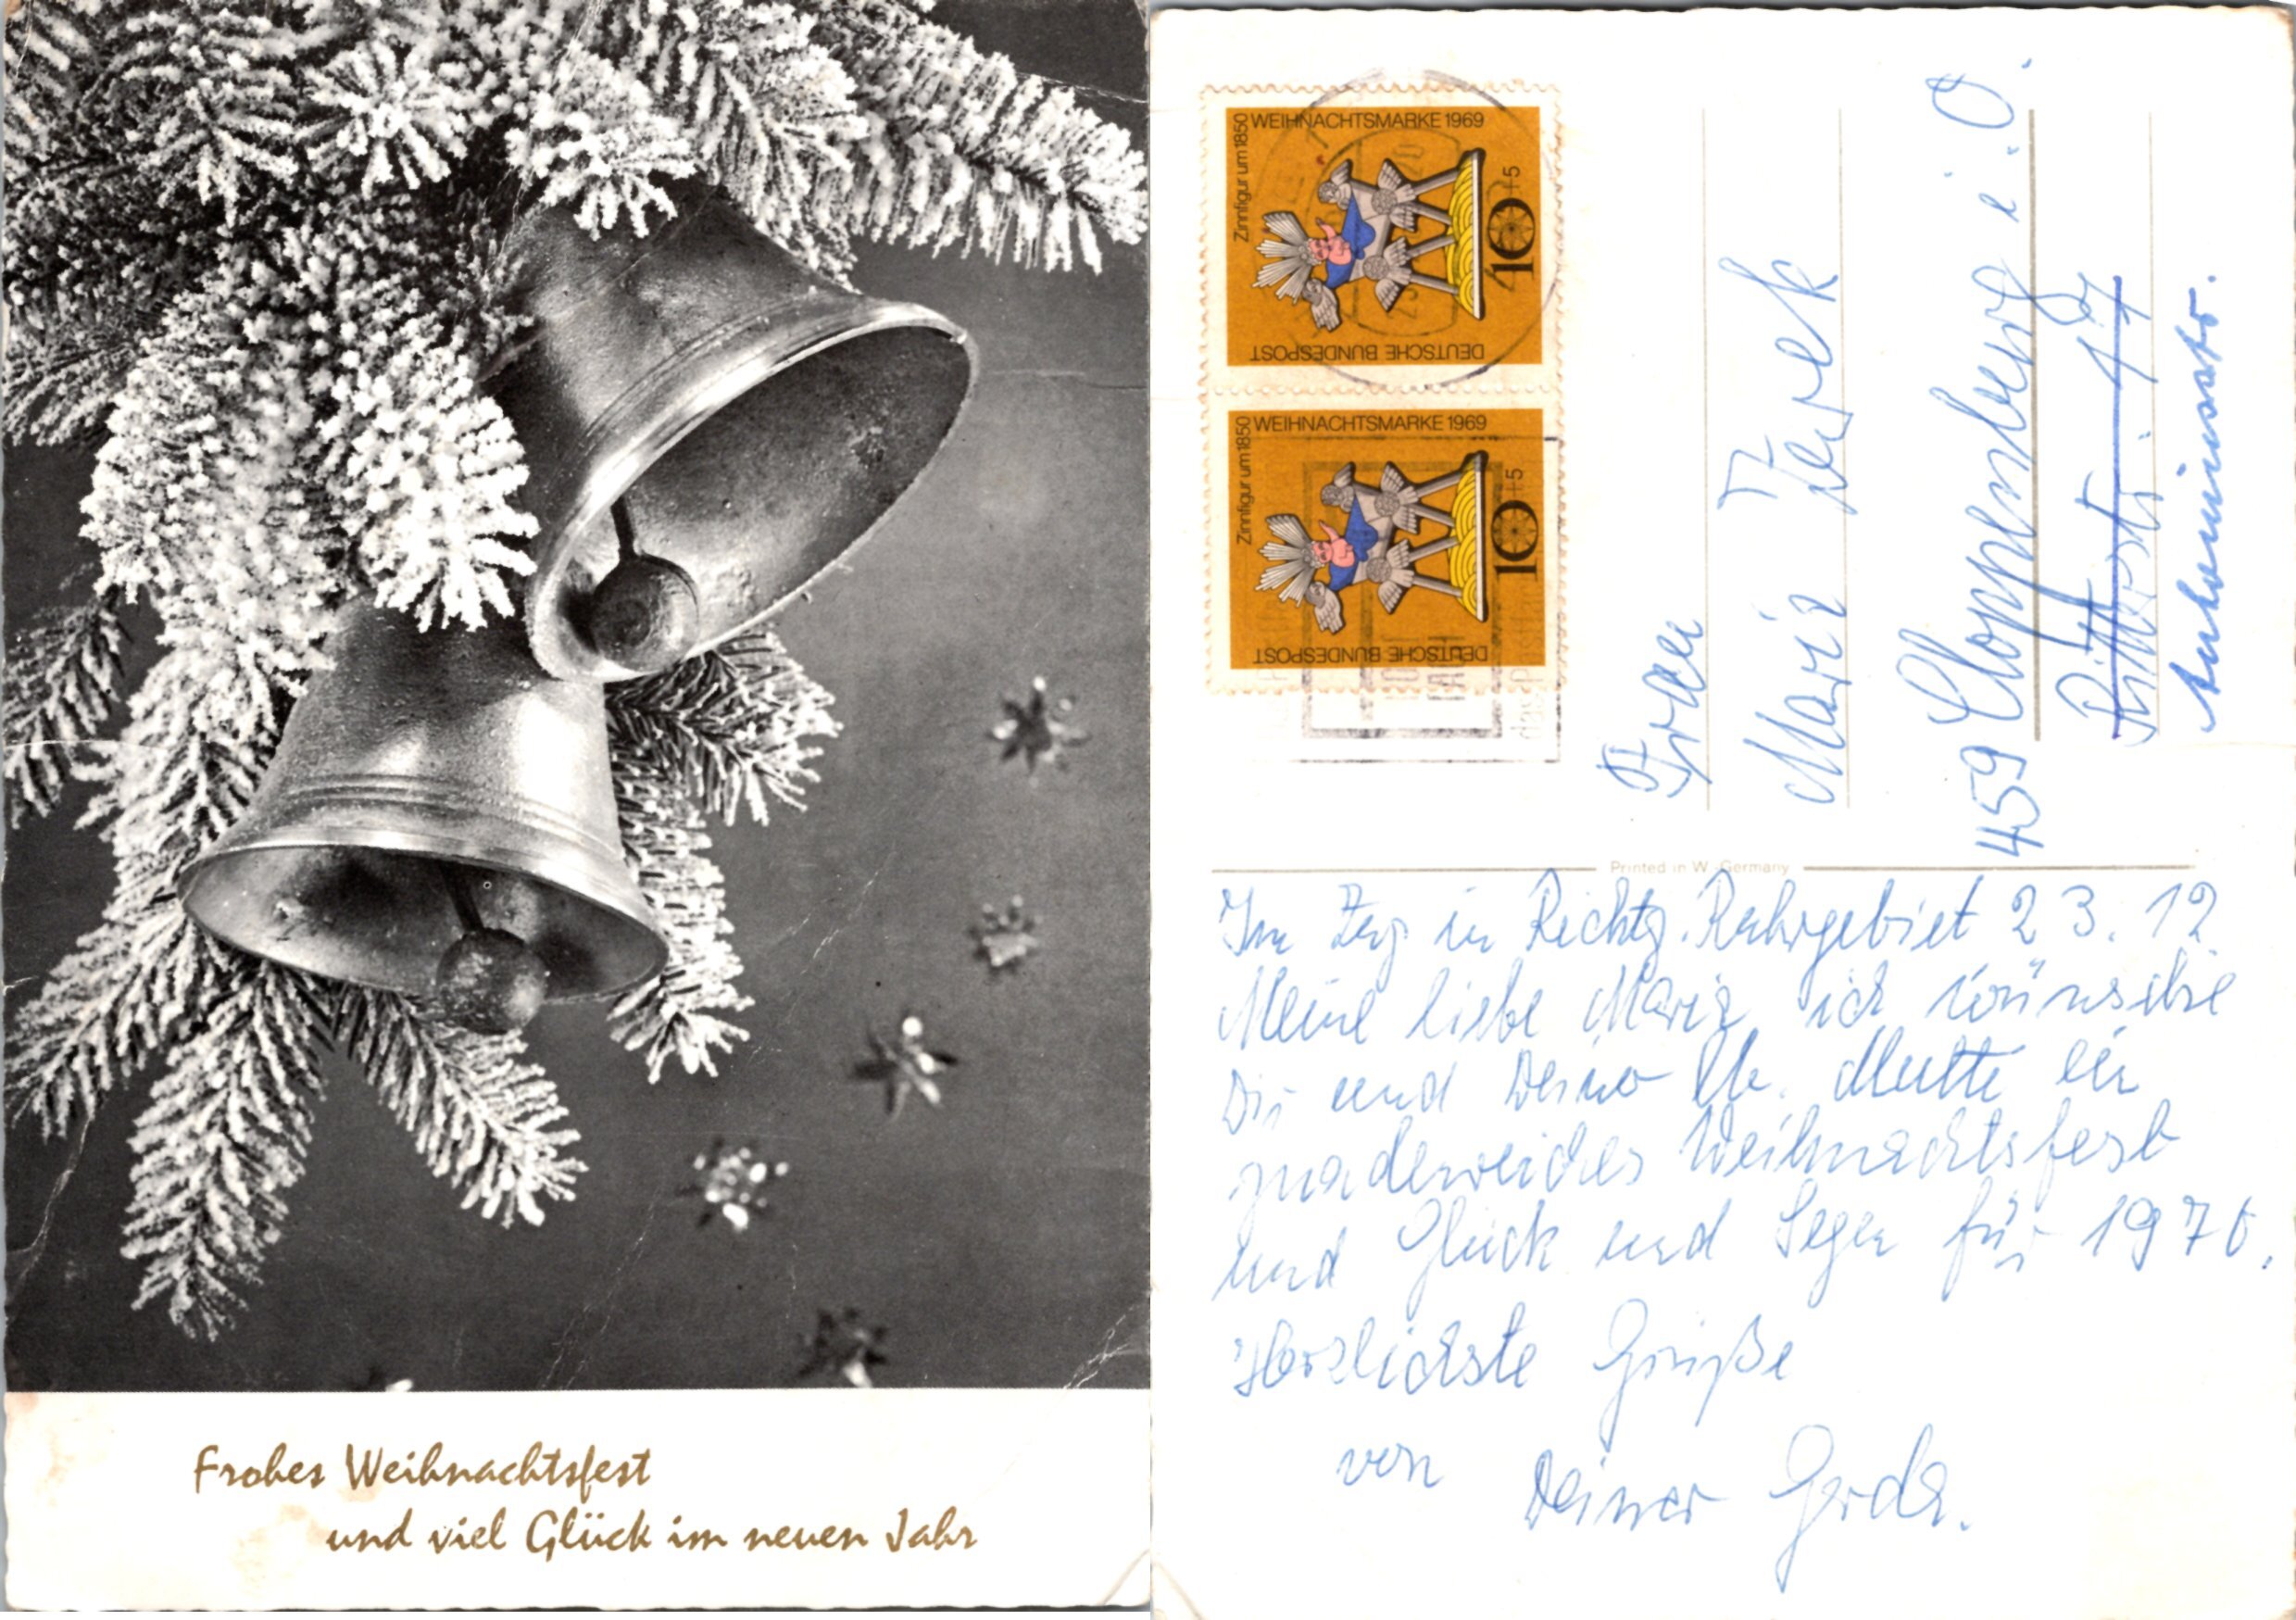 Frohes Weihnachtsfest
und viel Glück im neuen Jahr
WEIHNACHTSMARKE 1969
Zinnfigur um 1850
10+5
DEUTSCHE BUNDESPOST
WEIHNACHTSMARKE 1969
Zinnfigur um 1850
10+5
DEUTSCHE BUNDESPOST
Frau
Maria
459 Cloppenburg i. O.
Ritterstr. 17
Antoniusstr.
Printed in W. Germany
Im Zug in Richtg. Ruhrgebiet 23. 12.
Meine liebe Maria ich wünsche
Dir und Deiner lb. Mutter ein
gnadenreiches Weihnachtsfest
und Glück und Segen für 1970.
Herzlichste Grüße
von Deiner Gerda.